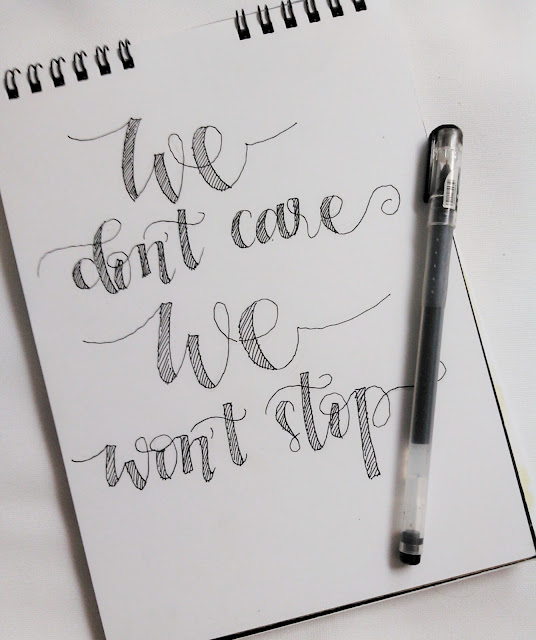 We
don't care
We
won't stop